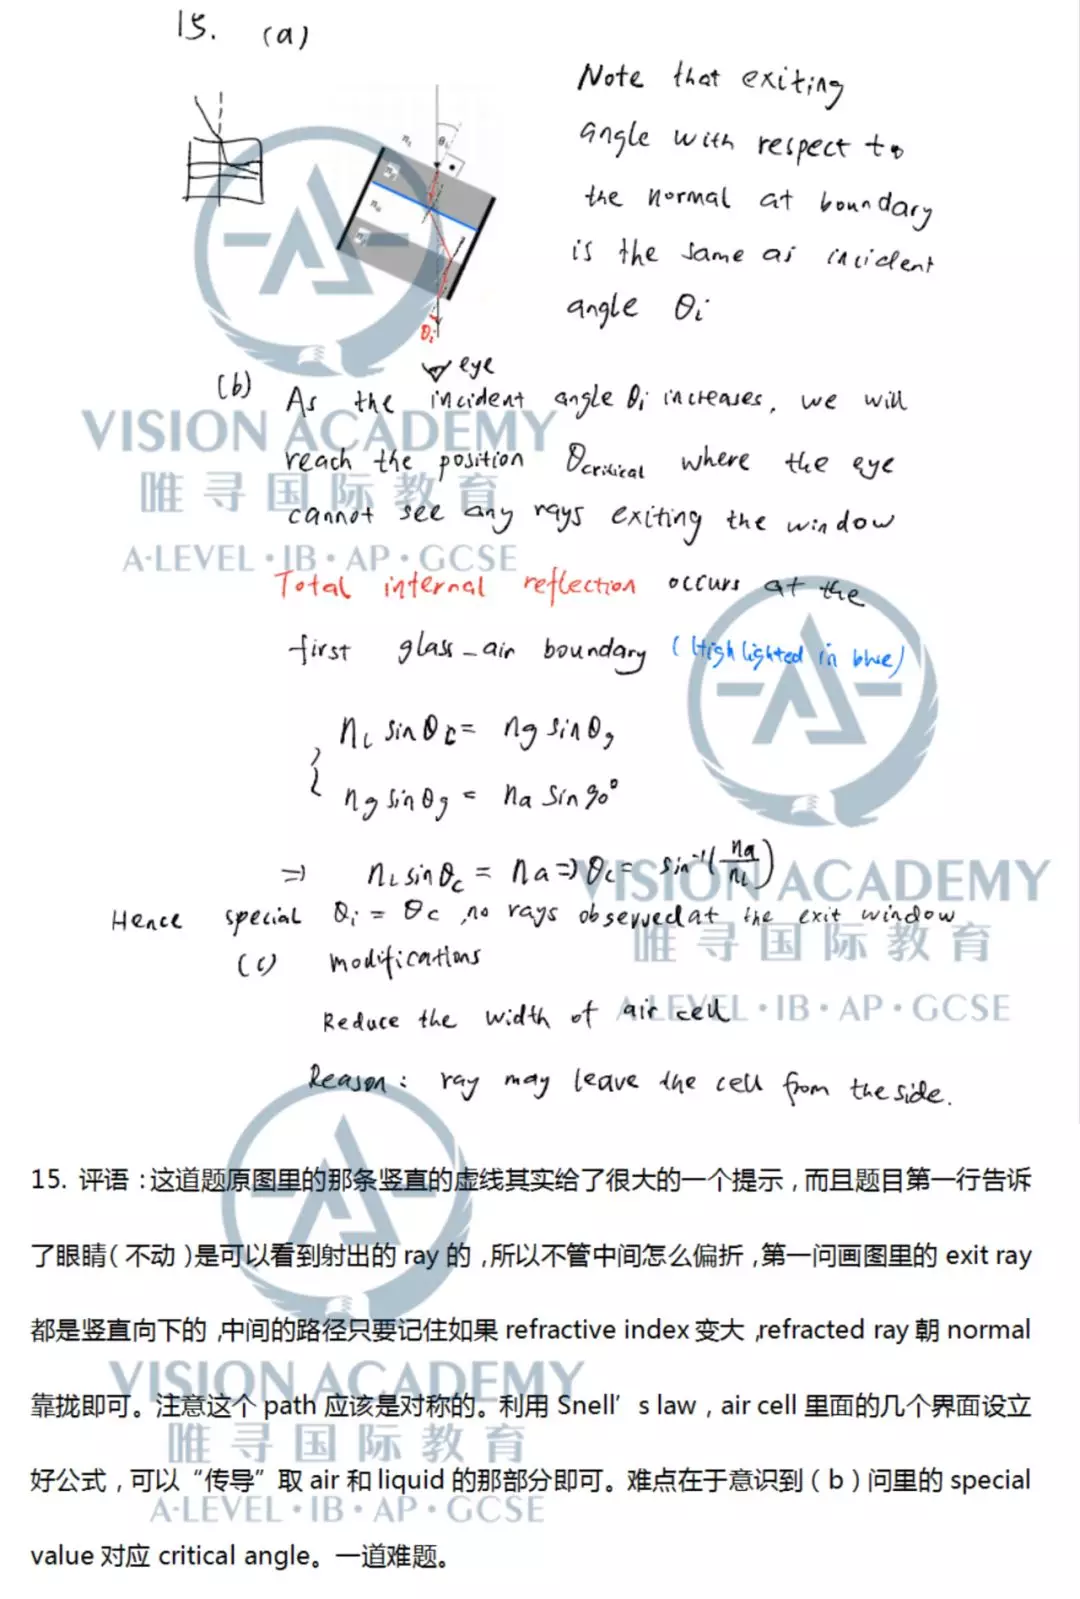 15. (a)
Note that exiting
angle with respect to
the normal at boundary
is the same as incident
angle θi
θi
eye
(b) As the incident angle θi increases, we will
reach the position θcritical where the eye
cannot see any rays exiting the window
Total internal reflection occurs at the
first glass-air boundary (Highlighted in blue)
nL sinθc = ng sinθg
ng sinθg = na sin90°
=> nL sinθc = na => θc = sin⁻¹(na/nL)
Hence special θi = θc, no rays observed at the exit window
(c) modifications
Reduce the width of air cell
Reason: ray may leave the cell from the side.
15. 评语：这道题原图里的那条竖直的虚线其实给了很大的一个提示，而且题目第一行告诉
了眼睛（不动）是可以看到射出的 ray 的，所以不管中间怎么偏折，第一问画图里的 exit ray
都是竖直向下的，中间的路径只要记住如果 refractive index 变大，refracted ray 朝 normal
靠拢即可。注意这个 path 应该是对称的。利用 Snell's law，air cell 里面的几个界面设立
好公式，可以“传导”取 air 和 liquid 的那部分即可。难点在于意识到（b）问里的 special
value 对应 critical angle。一道难题。
VISION ACADEMY
唯寻国际教育
A-LEVEL·IB·AP·GCSE
VISION ACADEMY
唯寻国际教育
A-LEVEL·IB·AP·GCSE
VISION ACADEMY
唯寻国际教育
A-LEVEL·IB·AP·GCSE